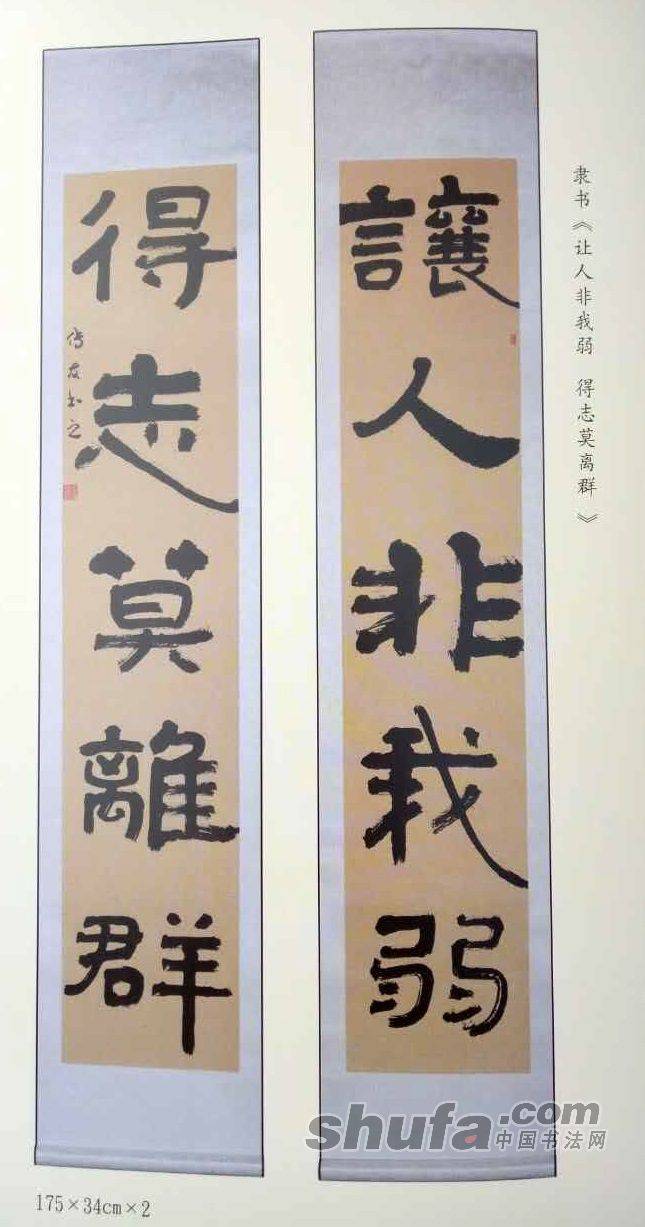 隶书《让人非我弱 得志莫离群》
讓人非我弱
得志莫離群
175×34cm×2
shufa.com
中国书法网